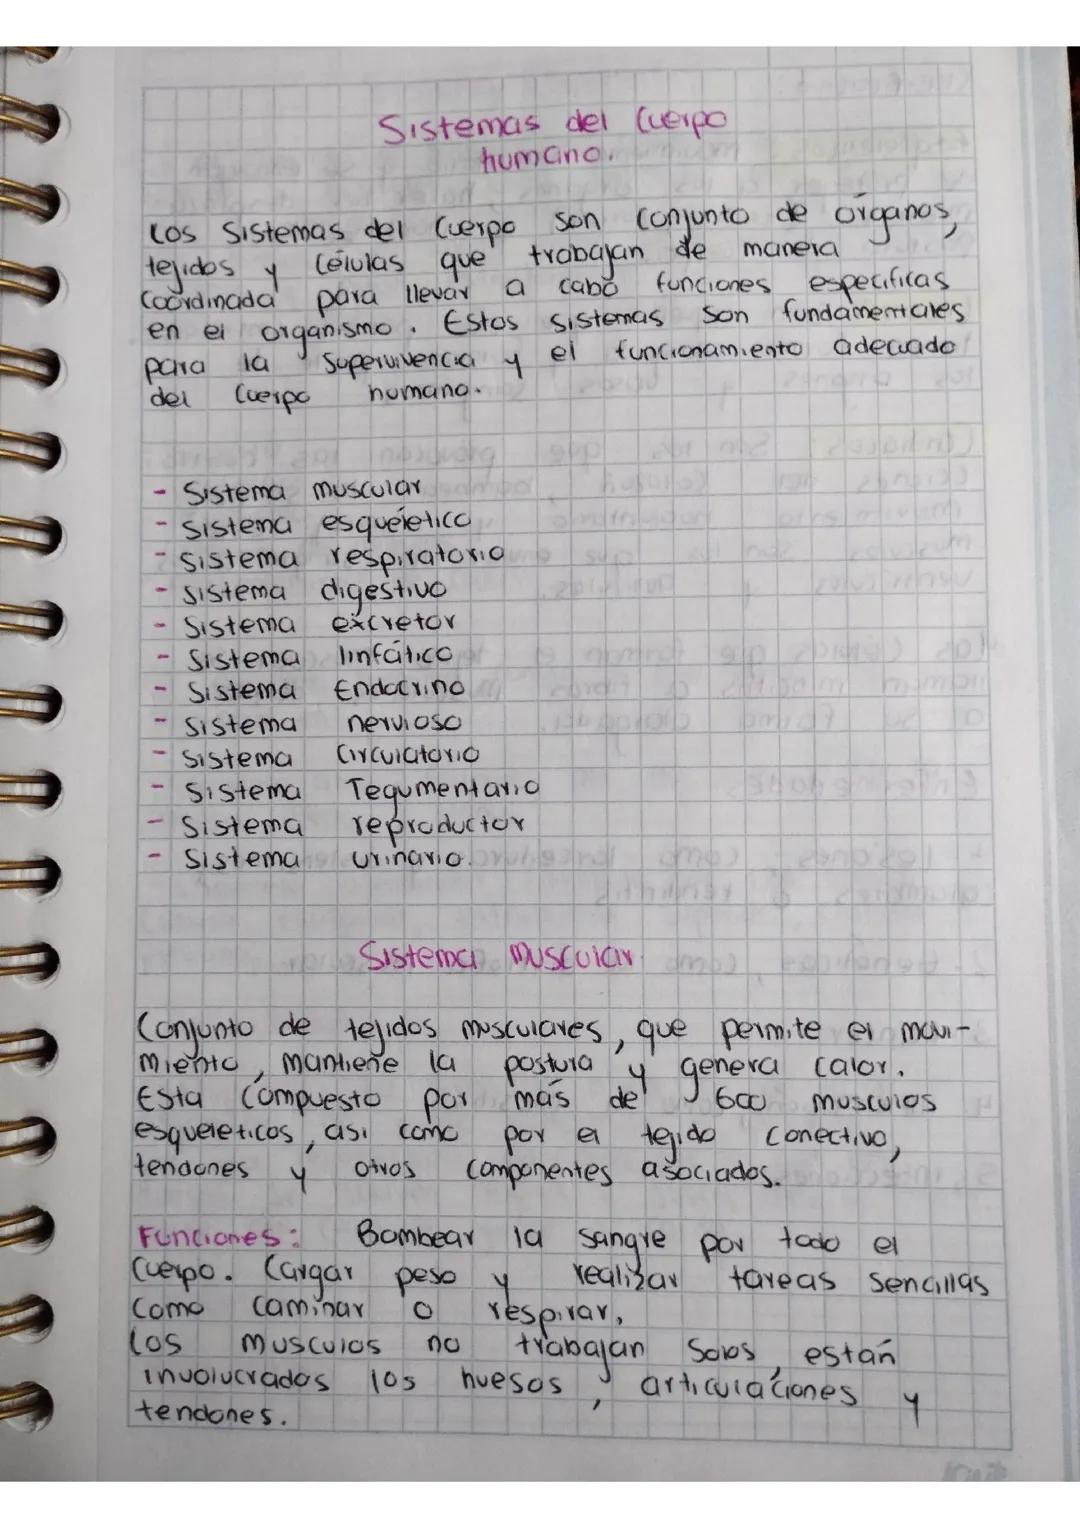 Sistemas del Cuerpo
humano.
Los Sistemas del Cuerpo son Conjunto de órganos,
tejidos y Células que trabajan de manera
Coordinada para llevar a cabo funciones especificas
en el organismo. Estos sistemas son fundamentales
para la Supervivencia y el funcionamiento adecuado
del Cuerpo humano.
- Sistema muscular
- Sistema esqueletico
- Sistema respiratorio
- Sistema digestivo
- Sistema excretor
- Sistema linfático
- Sistema Endocrino
- Sistema nervioso
- Sistema Circulatorio
- Sistema Tegumentario
- Sistema reproductor
- Sistema urinario.
Sistema muscular
Conjunto de tejidos musculares, que permite el movi-
miento, mantiene la postura y genera Calor.
Esta Compuesto por más de 600 musculos
esqueleticos, asi como por el tejido Conectivo,
tendones y otros Componentes asociados.
Funciones: Bombear la sangre por todo el
Cuerpo. Cargar peso y realizar tareas sencillas
Como Caminar o respirar,
Los musculos no trabajan Solos, están
involucrados los huesos, articulaciones y
tendones.